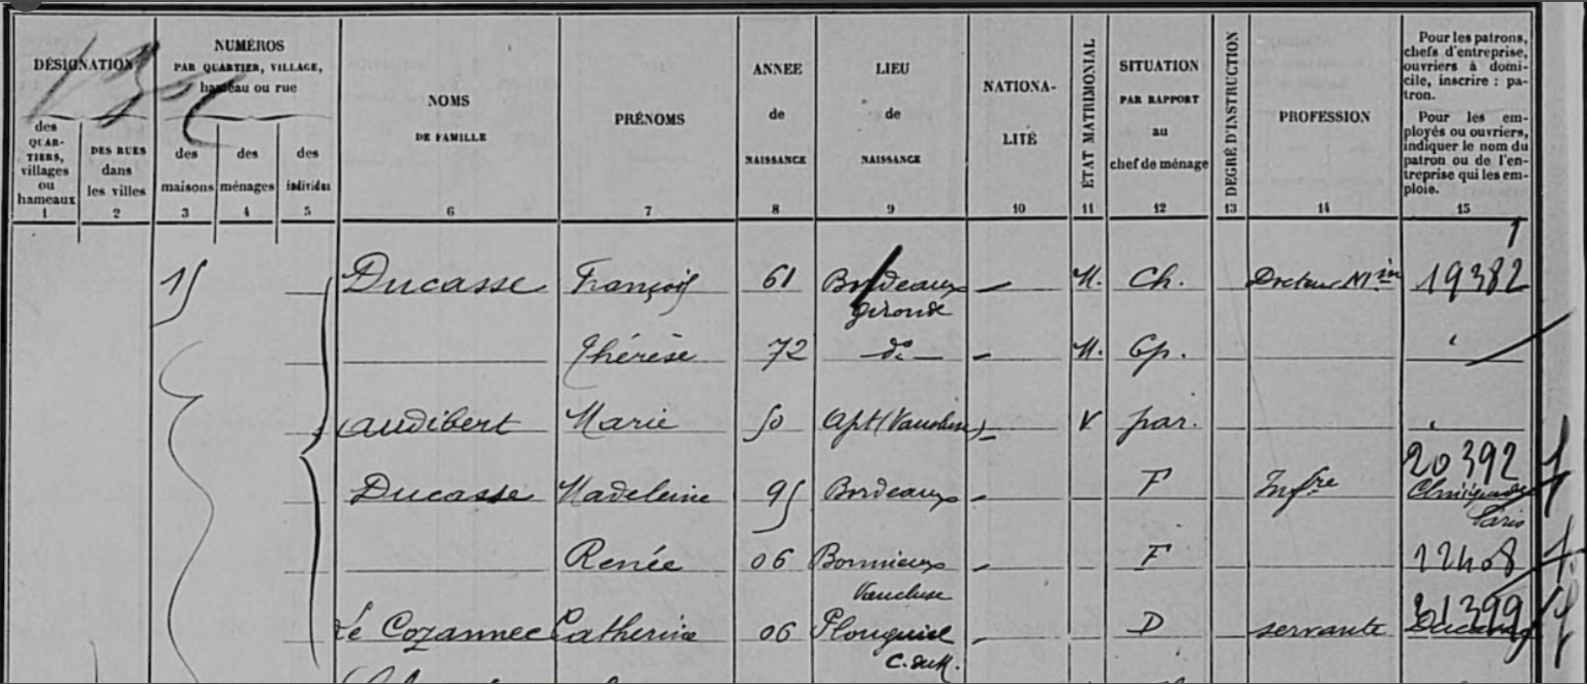 DÉSIGNATION
des QUAR-TIERS, villages ou hameaux
1
DES RUES dans les villes
2
NUMÉROS
PAR QUARTIER, VILLAGE,
hameau ou rue
des maisons
3
des ménages
4
des individus
5
NOMS
DE FAMILLE
6
PRÉNOMS
7
ANNEE
de
NAISSANCE
8
LIEU
de
NAISSANCE
9
NATIONA-
LITÉ
10
ÉTAT MATRIMONIAL
11
SITUATION
PAR RAPPORT
au
chef de ménage
12
DEGRÉ D'INSTRUCTION
13
PROFESSION
14
Pour les patrons,
chefs d'entreprise,
ouvriers à domi-
cile, inscrire : pa-
tron.
Pour les em-
ployés ou ouvriers,
indiquer le nom du
patron ou de l'en-
treprise qui les em-
ploie.
15
1
15 Ducasse François 61 Bordeaux M. Ch. Docteur Min 19382
Gironde
Thérèse 72 do M. Ep.
Audibert Marie 50 Apt (Vaucluse) V par.
20392
Ducasse Madeleine 95 Bordeaux F Infre Clinique
Paris
Renée 06 Bonnieux F 12408
Vaucluse
31399
Le Cozannec Catherine 06 Plouguiel D servante Ducasse
C. du N.